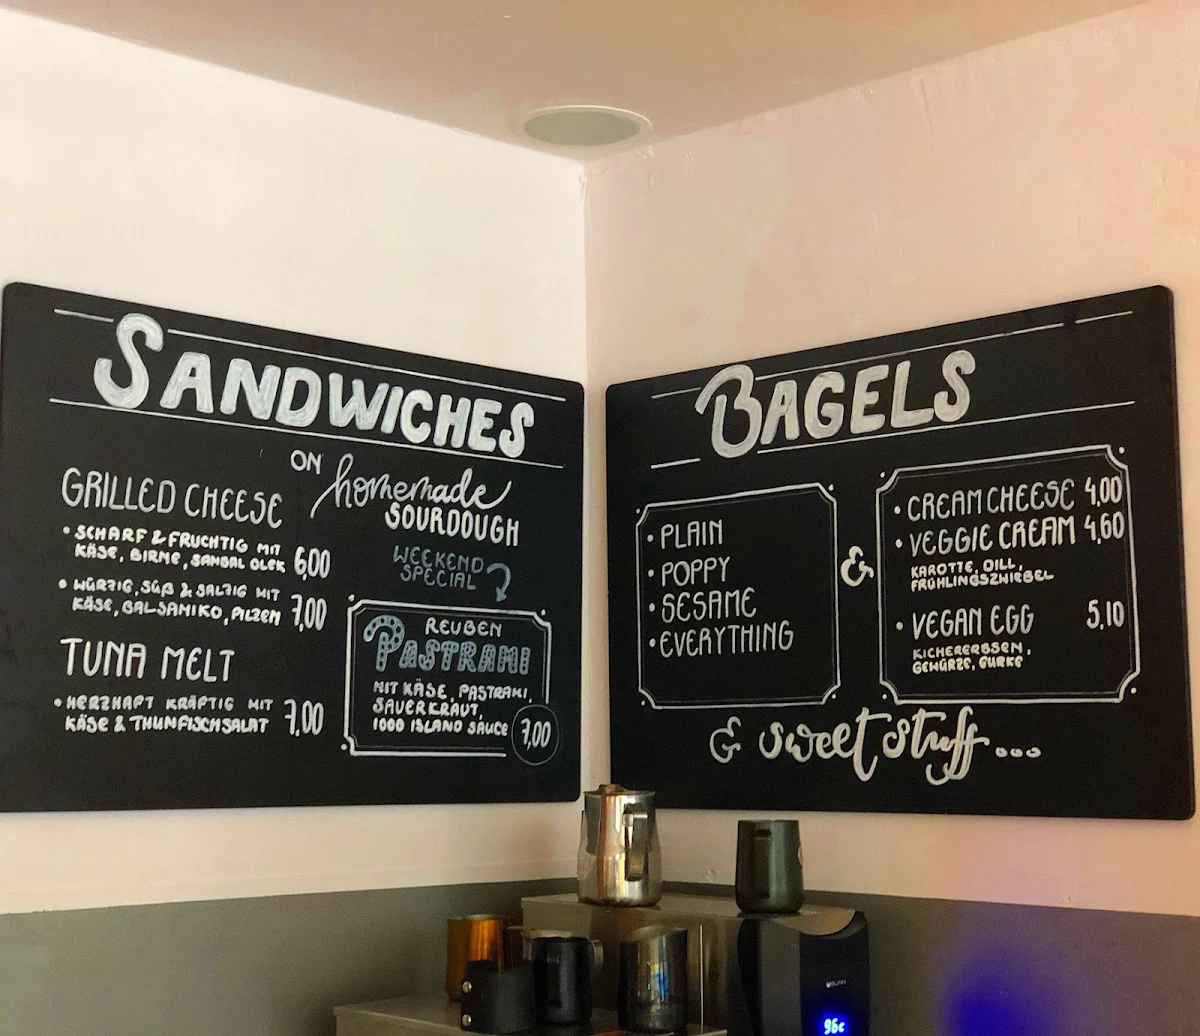 SANDWICHES
ON homemade
SOURDOUGH
GRILLED CHEESE
• SCHARF & FRUCHTIG MIT
KÄSE, BIRNE, SAMBAL OLEK 6,00
• WÜRZIG, SÜß & SALZIG MIT
KÄSE, BALSAMIKO, PILZEN 7,00
TUNA MELT
• HERZHAFT KRÄFTIG MIT
KÄSE & THUNFISCHSALAT 7,00
WEEKEND
SPECIAL
REUBEN
PASTRAMI
MIT KÄSE, PASTRAMI,
SAUERKRAUT,
1000 ISLAND SAUCE 7,00
BAGELS
• PLAIN
• POPPY
• SESAME
• EVERYTHING
&
• CREAM CHEESE 4,00
• VEGGIE CREAM 4,60
KAROTTE, DILL,
FRÜHLINGSZWIEBEL
• VEGAN EGG 5,10
KICHERERBSEN,
GEWÜRZE, GURKE
& sweet stuff...
BUNN
96c